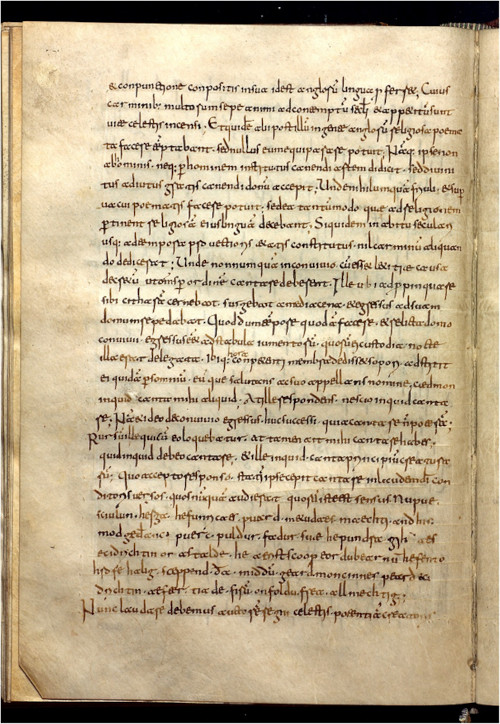 & conpunctione conpositis in sua id est anglorū lingua
carminib; multorum sepe animi ad contemptū sęcli & appetitum sunt
uitæ celestis incensi. Et quidē alii post illū in gente anglorū religiosa poema
ta facere temtabant. sed nullus eum equiparare potuit. Namq; ipse non
ab hominib; neq; p hominem institutus canendi artem didicit. sed diuini
tus adiutus gratis canendi donū accepit; Unde nihil umquā friuoli & sup
uacui poematis facere potuit. sed ea tantūmodo que ad religionem
pertinent religiosā eius linguā decebant; Siquidem in abitu seculari
usq; ad tempora constitutus nil carminū aliquan
do dedicerat; Unde non numquā in conuiuio cū esset letitiæ causa
decretū ut omnes p ordinē cantare deberent. Ille ubi adpropinquare
sibi citharā cernebat surgebat a media cena & egressus ad suam
domum repedabat. Quod dum tempore quodā faceret. & relicta domo
conuiuii egressus & ad stabula iumentorū. quorū ei custodia nocte
illa erat delegata. ibiq; hora conpetenti membra dedisset sopori. adstitit
ei quidā p somniū. eumque salutans ac suo appellans nomine, cædmon
inquid canta mihi aliquid. At ille respondens. nescio inquid canta
re; Nā & ideo de conuiuio egressus huc successi. quia cantare n poterā;
Rursū ille qui cū eo loquebatur. At tamen ait mihi cantare habes.
quid inquid debeo cantare. & ille inquid canta principiū creatura
rū; Quo accepto responso. statī ipse cepit cantare in laudem di con
ditoris uersos. quos nūquā audierat quorū iste est sensus Nu pue
sciulun. herga. hefunricaes. puard. metudaes maechti. and his
mod geðanc. puerc. puldur. fadur. sue he pundra. gih aes
eci drichtin or astalde. he aerist scoop eordubearnū hefen to
hrofe halig. sceppend. ða. middū. geard moncinnes peard eci
drichtin. aefter tiade. firū. on foldu. frea. allmechtig;
Nunc laudare debemus auctorē regni celestis. potentiā creatoris